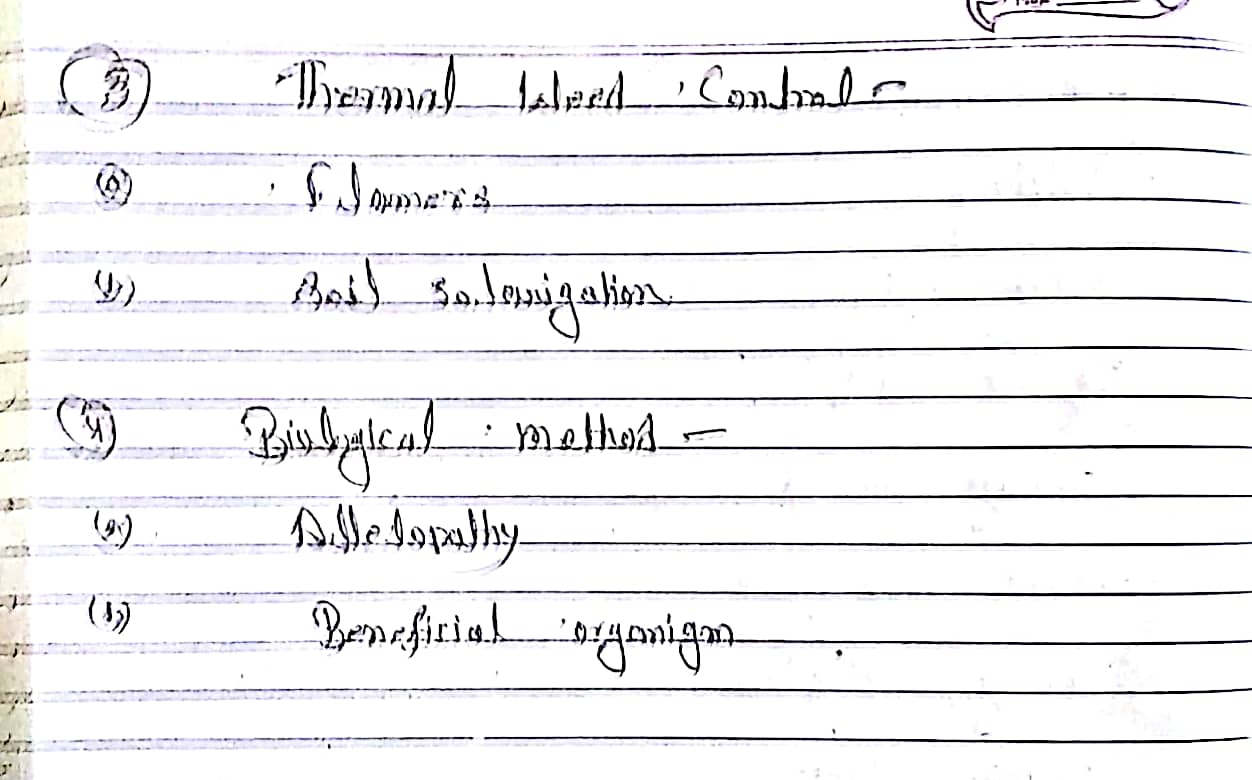 (3) Thermal Weed Control -
(a) Flamers
(b) Soil solarization
(4) Biological method -
(a) Allelopathy
(b) Beneficial organism